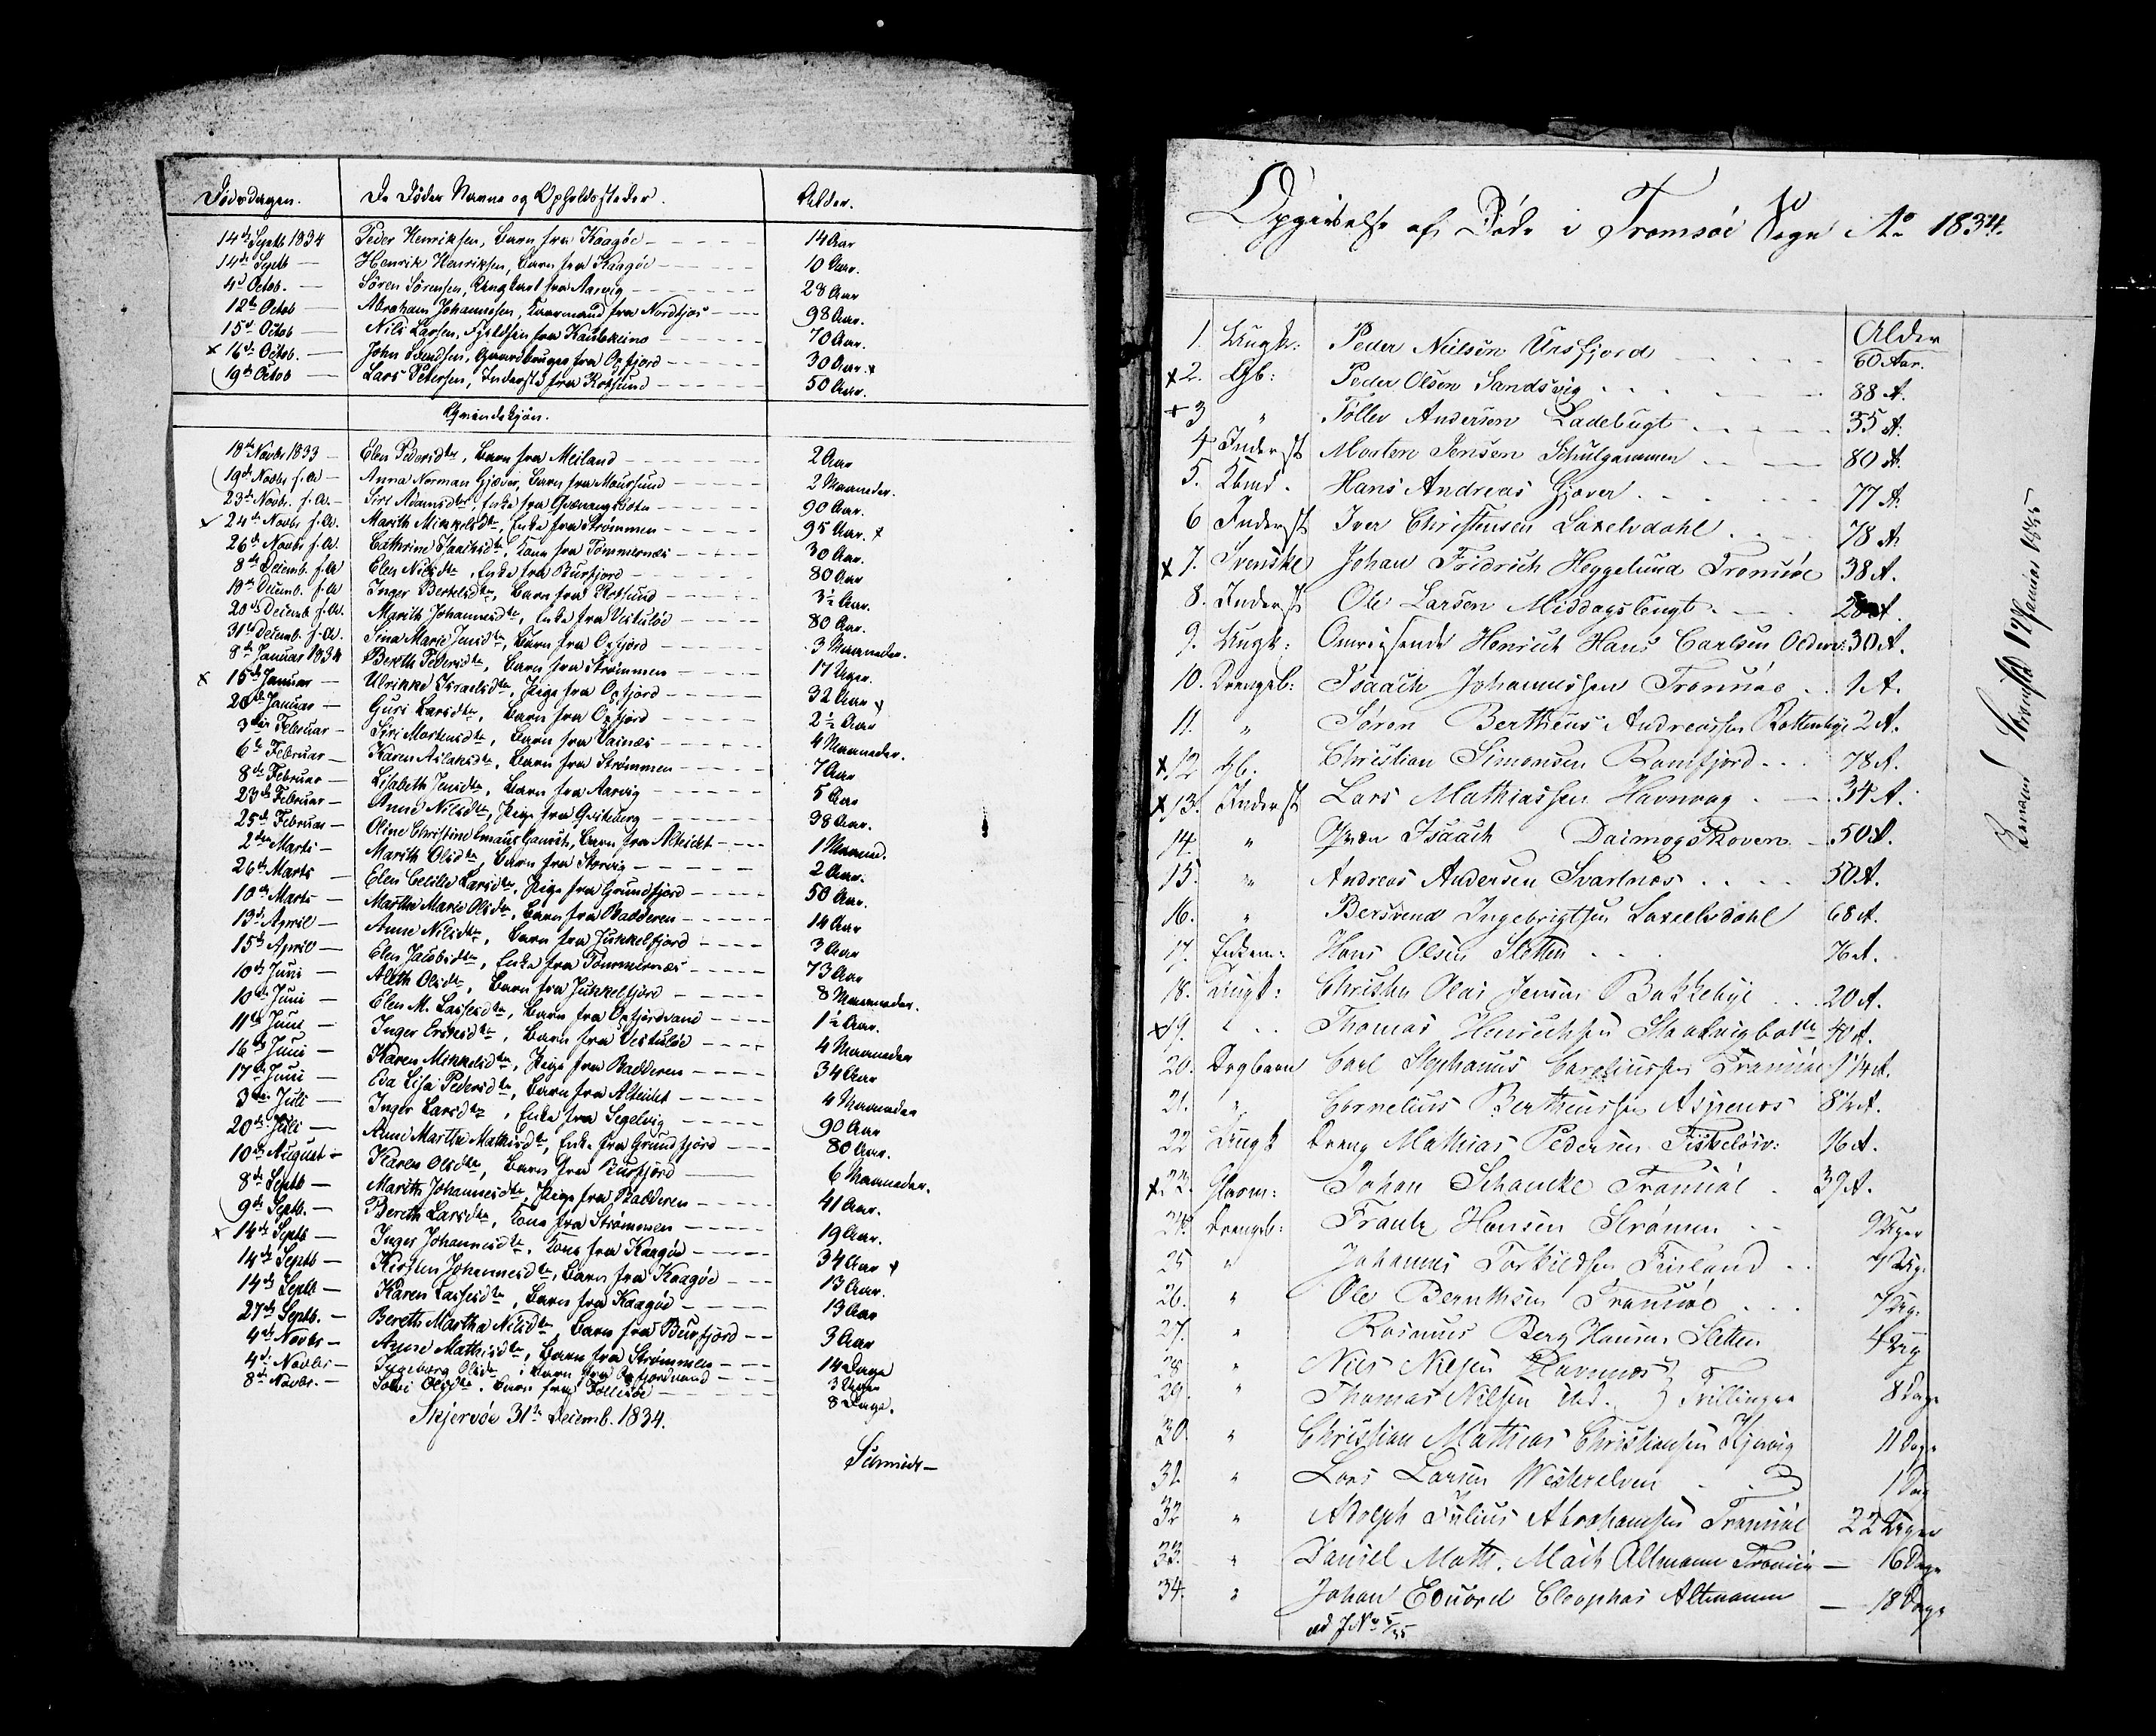 Dødsdagen. De Dødes Navne og Opholdssteder. Alder.
14de Septb 1834 Peder Henriksen, Barn fra Kaagøe 14 Aar
14de Septb Henrik Henriksen, Barn fra Kaagøe 10 Aar.
4de Octob. Søren Sørensen, Ungkarl fra Aarvig 28 Aar
12te Octob Abraham Johannesen, fra Nordfjos 98 Aar.
15de Octob Nils Larsen, fra Kautokeino 70 Aar.
x 16de Octob. John Svendsen, Gaardbruger fra Oxfjord 30 Aar. x
19de Octob Lars Petersen, Inderst fra Kobsund 50 Aar.
Qvindekjøn.
18de Novbr 1833 Elen Pedersdtr, Barn fra Meiland 2 Aar
19de Novbr f. A. Anna Norman Gjæver, Barn fra Maursund 2 Maaneder.
23de Novbr. f. A. Siri Adamsdtr, Enke fra Qvænangsbotn 90 Aar.
24de Novbr f. A. Marith Mikkelsdtr, Enke fra Strømmen 95 Aar. x
26de Novbr f. A. Cathrine Isachsdtr, Kone fra Tømmernæs 30 Aar.
8de Decemb. f. A Elen Nilsdtr, Enke fra Burfjord 80 Aar
18de Decemb. f. A Inger Bertelsdtr, Barn fra Kobsund 3½ Aar.
20de Decemb f. A. Marith Johannesdtr, Enke fra 80 Aar.
31te Decemb. f. A. Sina Marie Jensdtr, Barn fra Oxfjord 3 Maaneder.
8de Januar 1834 Berith Pedersdtr, Barn fra Strømmen 17 Uger.
x 15de Januar Ulrikke Israelsdtr, Pige fra Oxfjord 32 Aar x
20de Januar Guri Larsdtr, Barn fra Oxfjord 2½ Aar
3die Februar Siri Mortensdtr, Barn fra Vainæs 4 Maaneder.
6te Februar Karen Aslaksdtr, Barn fra Strømmen 7 Aar
8de Februar Lisabeth Jensdtr, Barn fra Aarvig 5 Aar
23de Februar Anne Nilsdtr, Pige fra 38 Aar.
25de Februar Oline Christine Emaus Gamst, Barn fra Alteidet 1 Maaned.
2den Marts Marith Olsdtr, Barn fra Storvig 2 Aar.
26de Marts Elen Cecilie Larsdtr, Pige fra Grundfjord 50 Aar.
10de Marts Martha Marie Olsdtr, Barn fra Badderen 14 Aar
13de April Anne Nilsdtr, Barn fra Jukkelfjord 3 Aar
15de April Elen Jacobsdtr, Enke fra Tømmernæs 73 Aar
10de Juni Aleth Olsdtr, Barn fra Jukkelfjord 8 Maaneder.
10de Juni Elen M. Lassesdtr, Barn fra Oxfjordvand 1½ Aar.
11te Juni Inger Eriksdtr, Barn fra 4 Maaneder
16de Juni Karen Mikkelsdtr, Pige fra Badderen 34 Aar
17de Juni Eva Lisa Pedersdtr, Barn fra Alteidet 4 Maaneder
3die Juli Inger Larsdtr, Enke fra Segelvig 90 Aar
20de Juli Anne Martha Mathisdtr, Enke fra Grundfjord 80 Aar.
10de August Karen Olsdtr, Barn fra Burfjord 6 Maaneder.
8de Septb Marith Johannesdtr, Pige fra Badderen 41 Aar.
9de Septb. Bereth Larsdtr, Kone fra Strømmen 19 Aar.
x 14de Septb Inger Johannesdtr, Kone fra Kaagøe 34 Aar x
14de Septb Kirsten Johannesdtr, Barn fra Kaagøe 13 Aar.
14de Septb Karen Lassesdtr, Barn fra Kaagøe 13 Aar
27de Septb. Bereth Martha Nilsdtr, Barn fra Burfjord 3 Aar
4de Novbr Anne Mathisdtr, Barn fra Strømmen 14 Dage
4de Novbr Ingeborg Olsdtr, Barn fra Oxfjordvand 3 Uger
8de Novbr. Sølvi Olsdtr, Barn fra Follesøe 8 Dage.
Skjervøe 31te Decemb. 1834.
Schmidt
Opgivelse af Døde i Tromsøe Sogn Ao 1834.
Alder
1. Ungk: Peder Nielsen Ursfjord 60 Aar.
x 2. Gb: Peder Olsen Sandsvig 38 A.
x 3 " Tollev Andersen Ladebugt 35 A.
4 Inderst Morten Jensen Schulgammen 80 A.
5. Kbmd. Hans Andreas Gjæver 77 A.
6 Inderst Iver Christensen Laxelvdahl 78 A.
x 7. Svenske Johan Fridrich Heggelund Tromsøe 38 A.
8. Inderst Ole Larsen Middagsbugt 28 A.
9. Ungk: Omreisende Henrich Hans Carlsen 30 A.
10. Drengeb: Isaach Johannessen Tromsøe 1 A.
11. " Søren Bertheus Andreassen 2 A.
x 12 Gb. Christian Simonsen Ramfjord 78 A.
x 13. Inderst Lars Mathiassen Havnvag 34 A.
14. " Qvæn Isaach Daimogskoven 50 A.
15. " Andreas Andersen Svartnæs 50 A.
16. " Bersvend Ingebrigtsen Laxelvdahl 68 A.
17. Enkem: Hans Olsen Sletten 76 A.
18. Ungk: Christen Olai Jensen Bakkebye 20 A.
x 19. " Thomas Henrichsen 40 A.
20. Drgbarn Carl Stephanus Corneliussen Tromsøe 1¼ A.
21. " Cornelius Bertheussen Aspenæs 8½ A.
22 Ungk Dreng Mathias Pedersen 16 A.
x 23. Johan Schancke Tromsøe 39 A.
24. Drengeb: Frantz Hansen Strømen 9 Uger
25 " Johannes Torkildsen Finland 7 Ug.
26. " Ole Bernthsen Tromsøe 7 Ug.
27. " Rasmus Berg Hansen Sletten 4 Ug
28 " Niels Nilsen Havnnæs
29. " Thomas Nilsen ibid. Tvillinger 8 Dage
30. " Christian Mathias Christiansen 11 Dage
31. " Lars Larsen Westerelven 1 Dag
32 " Adolph Julius Abrahamsen Tromsøe 22 Uger
33. " Daniel Math. Mack Altmann Tromsøe 16 Dage
34. " Johan Eduard Cleophas Altmann 18 Dage
ad J No 5/35
1835